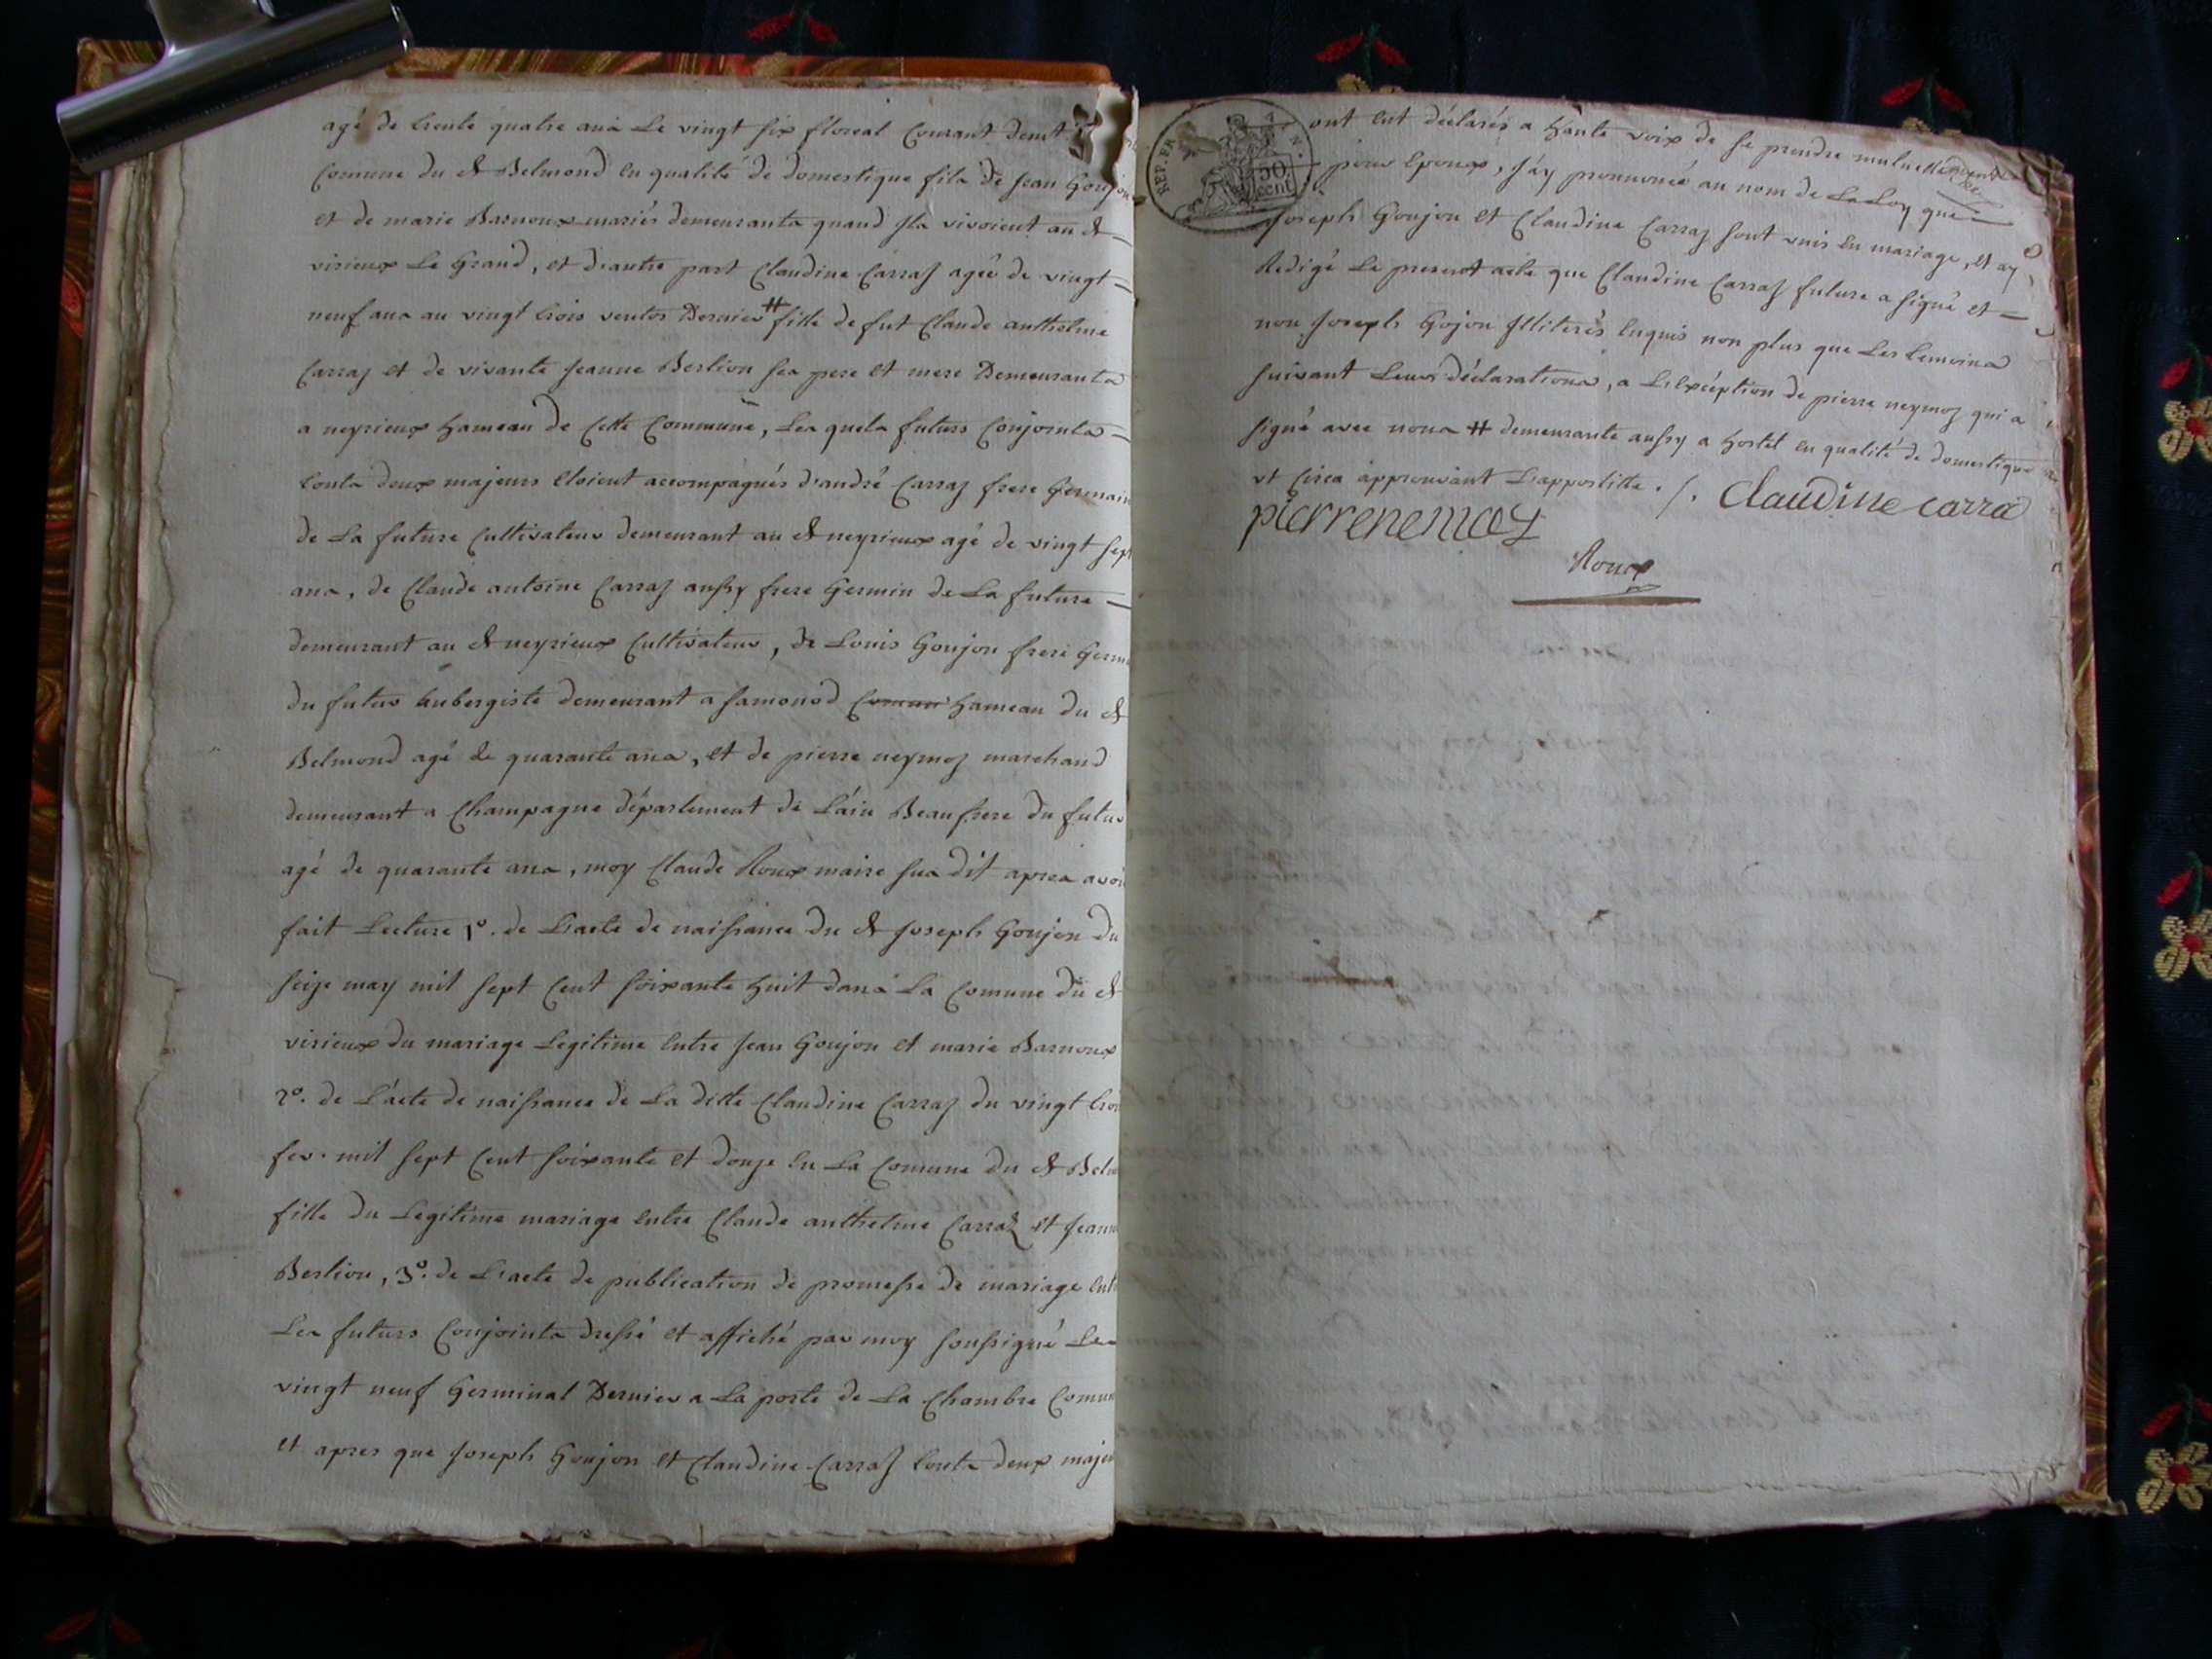 agé de trente quatre ans le vingt six floreal Courant demt
Comune du d Belmond en qualité de domestique fils de Jean Goujon
et de marie Barnoux mariés demeurants quand ils vivoient au d
virieux Le Grand, et d'autre part Claudine Carraz ageé de vingt
neuf ans au vingt trois ventos Dernier # fille de fut Claude anthelme
Carraz et de vivante Jeanne Berlion ses pere et mere Demeurants
a neyrieux hameau de Cette Commune, Les quels futurs Conjoints
touts deux majeurs Etoient accompagnés d'andré Carraz frere Germain
de La future Cultivateur demeurant au d neyrieux agé de vingt sept
ans, de Claude antoine Carraz aussy frere Germin de La future
demeurant au d neyrieux Cultivateur, de Louis Goujon frere Germ
du futur aubergiste demeurant a Samonod Comun hameau du d
Belmond agé de quarante ans, et de pierre neymoz marchand
demeurant a Champagne département de L'ain Beaufrere du futur
agé de quarante ans, moy Claude Roux maire sus dit apres avoir
fait Lecture 1º. de L'acte de naissance du d Joseph Goujon du
seize may mil sept Cent soixante huit dans La Comune du d
virieux du mariage Legitime Entre Jean Goujon et marie Barnoux
2º. de L'acte de naissance de La ditte Claudine Carraz du vingt troi
fev. mil sept Cent soixante et douze en La Comune du d Belm
fille du Legitime mariage entre Claude anthelme Carraz et Jeann
Berlion, 3º. de L'acte de publication de promesse de mariage Entr
Les futurs Conjoints dressé et affiché par moy soussigné Les
vingt neuf Germinal Dernier a La porte de La Chambre Comun
et apres que Joseph Goujon et Claudine Carraz touts deux majeu
REP. FRA
50 cent
ont Eut déclarés a haute voix de se prendre mutuellement
pour Epoux, J'ay prononcé au nom de La Loy que
Joseph Goujon et Claudine Carraz sont unis en mariage, et ay
Redigé Le present acte que Claudine Carraz future a signé et
non Joseph Gojon Illiterés Enquis non plus que Les temoins
suivant Leurs déclarations, a L'Exception de pierre neymoz qui a
signé avec nous # demeurante aussy a hostel en qualité de domestique
vt Circa approuvant L'appostille ./. Claudine carra
pierrenemoz
Roux